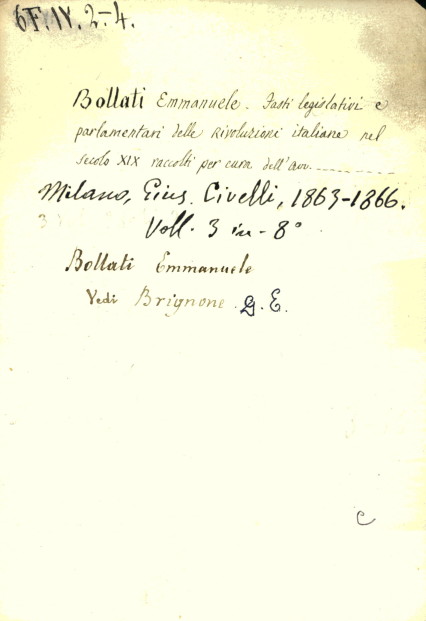 6F.IV.2-4.
Bollati Emmanuele. Fasti legislativi e
parlamentari delle Rivoluzioni italiane nel
secolo XIX raccolti per cura dell'avv.
Milano, Gius. Civelli, 1863-1866.
3)
Voll. 3 in-8°
Bollati Emmanuele
Vedi Brignone G. E.
C